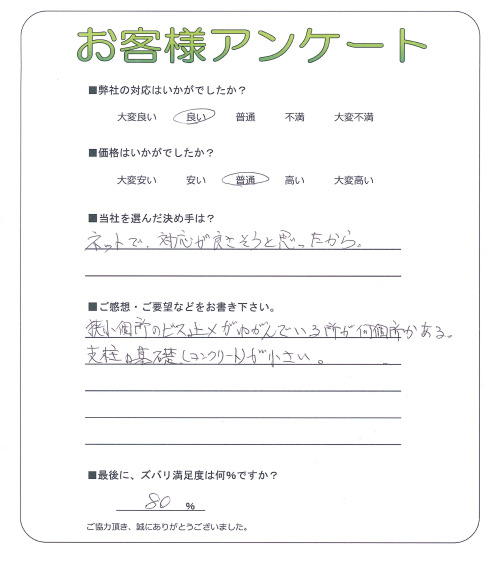 お客様アンケート
■弊社の対応はいかがでしたか？
大変良い 良い 普通 不満 大変不満
■価格はいかがでしたか？
大変安い 安い 普通 高い 大変高い
■当社を選んだ決め手は？
ネットで、対応が良さそうと思ったから。
■ご感想・ご要望などをお書き下さい。
狭小個所のビス止メがゆがんでいる所が何個所かある。
支柱の基礎（コンクリート）が小さい。
■最後に、ズバリ満足度は何%ですか？
80 %
ご協力頂き、誠にありがとうございました。